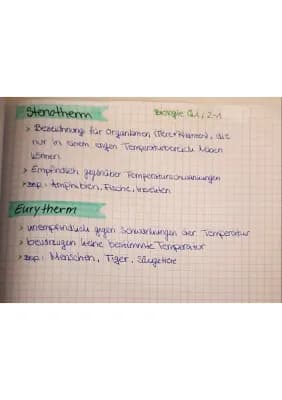 Stenotherm
Biologie Q1, 2-1
> Bezeichnung für Organismen (Tiere+Pflanzen), die
nur in einem engen Temperaturbereich leben
können
> Empfindlich gegenüber Temperaturschwankungen
> Bsp.: Amphibien, Fische, Insekten
Eurytherm
> unempfindlich gegen Schwankungen der Temperatur
> bevorzugen keine bestimmte Temperatur
> Bsp.: Menschen, Tiger, Säugetiere